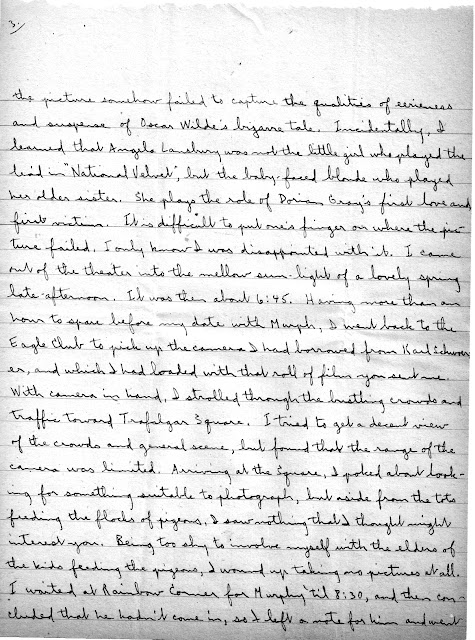 3.
the picture somehow failed to capture the qualities of eerieness
and suspense of Oscar Wilde's bizarre tale. Incidentally, I
learned that Angela Lansbury was not the little girl who played the
lead in "National Velvet", but the baby-faced blonde who played
her older sister. She plays the role of Dorian Gray's first love and
first victim. It is difficult to put one's finger on where the pic-
ture failed. I only know I was disappointed with it. I came
out of the theater into the mellow sun-light of a lovely spring
late-afternoon. It was then about 6:45. Having more than an
hour to spare before my date with Murph, I went back to the
Eagle Club to pick up the camera I had borrowed from Karl
er, and which I had loaded with that roll of film you sent me.
With camera in hand, I strolled through the bustling crowds and
traffic toward Trafalgar Square. I tried to get a decent view
of the crowds and general scene, but found that the range of the
camera was limited. Arriving at the Square, I poked about look-
ing for something suitable to photograph, but aside from the tots
feeding the flocks of pigeons, I saw nothing that I thought might
interest you. Being too shy to involve myself with the elders of
the kids feeding the pigeons, I wound up taking no pictures at all.
I waited at Rainbow Corner for Murphy 'til 8:30, and then con-
cluded that he hadn't come in, so I left a note for him and went